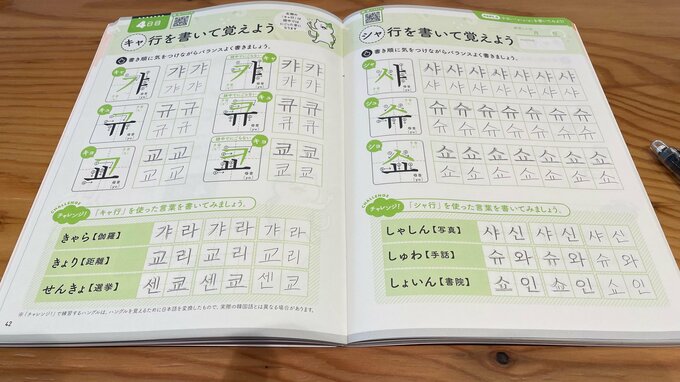 4日目
キャ行を書いて覚えよう
書き順に気をつけながらバランスよく書きましょう。
キャ 갸 갸 갸 キャ 캬 캬 캬
갸 갸 캬 캬
キュ 규 규 규 キュ 큐 큐 큐
규 규 큐 큐
キョ 교 교 교 キョ 쿄 쿄 쿄
교 교 쿄 쿄
CHALLENGE
チャレンジ! 「キャ行」を使った言葉を書いてみましょう。
きゃら【伽羅】 갸 라 갸 라 갸 라
きょり【距離】 교 리 교 리 교 리
せんきょ【選挙】 센 쿄 센 쿄 센 쿄
※「チャレンジ!」で練習するハングルは、ハングルを覚えるために日本語を変換したもので、実際の韓国語とは異なる場合があります。
42
シャ行を書いて覚えよう
月 日
書き順に気をつけながらバランスよく書きましょう。
シャ 샤 샤 샤 샤 샤 샤 샤 샤
샤 샤 샤 샤 샤 샤 샤
シュ 슈 슈 슈 슈 슈 슈 슈 슈
슈 슈 슈 슈 슈 슈 슈
ショ 쇼 쇼 쇼 쇼 쇼 쇼 쇼 쇼
쇼 쇼 쇼 쇼 쇼 쇼 쇼
CHALLENGE
チャレンジ! 「シャ行」を使った言葉を書いてみましょう。
しゃしん【写真】 샤 신 샤 신 샤 신
しゅわ【手話】 슈 와 슈 와 슈 와
しょいん【書院】 쇼 인 쇼 인 쇼 인